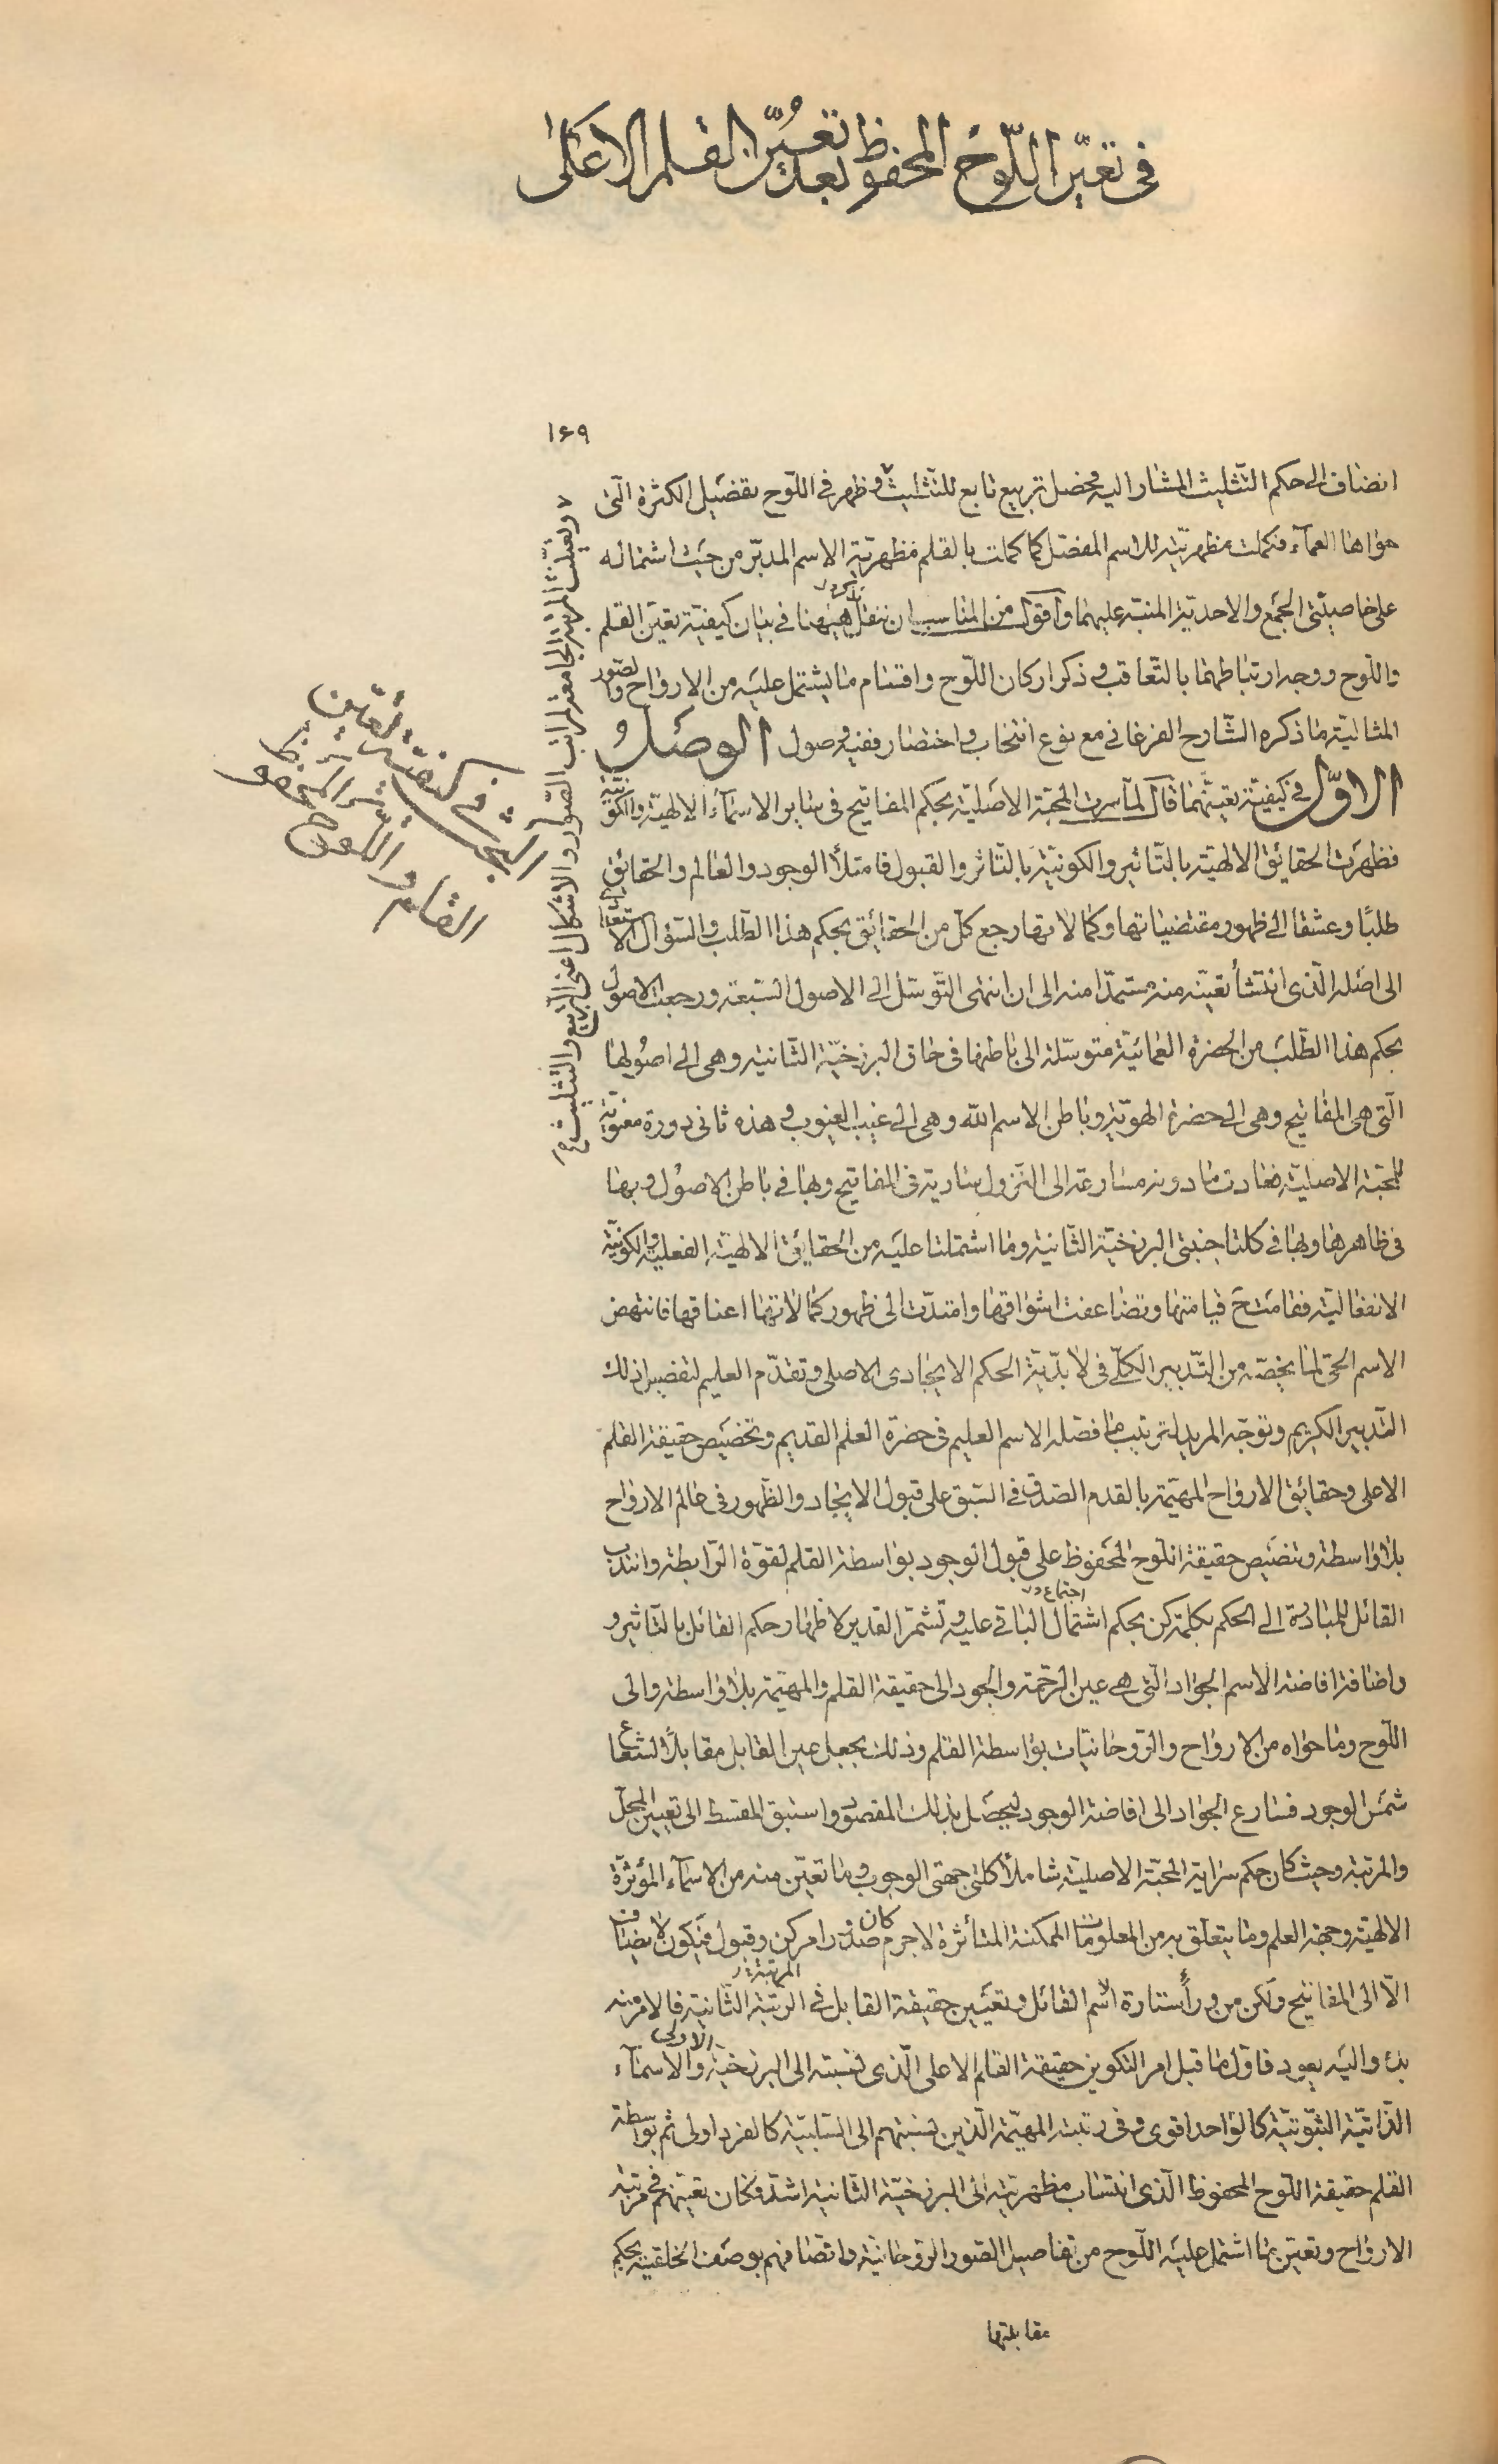 في تعيّن اللّوح المحفوظ بعد تعيُّن القلم الاعلى
١٦٩
انضاف الى حكم التّثليث المشار اليه فحصل تربيع تابع للتّثليث وظهر في اللّوح تفصيل الكثرة الّتى
حواها العمآء فكملت مظهريّته للاسم المفصّل كما كملت بالقلم مظهريّة الاسم المدبّر من حيث اشتماله
على خاصيّتى الجمع والاحديّة المنبّه عليهما واقول من المناسب ان ننقل هيهنا في بيان كيفيّة تعيّن القلم
واللّوح ووجه ارتباطهما بالتّعاقب وذكر اركان اللّوح واقسام ما يشتمل عليه من الارواح والصّور
المثاليّة ما ذكره الشّارح الفرغاني مع نوع انتخاب واختصار ففيه وصول الوصل
الاوّل في كيفيّة تعيّنهما قال لمّا سرت المحبّة الاصليّة بحكم المفاتيح في ساير الاسمآء الالهيّة والكونيّة
فظهرت الحقائق الالهيّة بالتّاثير والكونيّة بالتّاثر والقبول فامتلأ الوجود والعالم والحقائق
طلبًا وعشقا الى ظهور مقتضياتها وكمالاتها رجع كلّ من الحقائق بحكم هذا الطّلب والسّؤال
الى اصله الّذى انتشأ تعيّنه منه مستمدّا منه الى ان انتهى التّوسّل الى الاصول السّبعة ورجعت الاصول
بحكم هذا الطّلب من الحضرة العمائيّة متوسّلة الى باطنها في حاق البرزخيّة الثّانية وهى الى اصولها
الّتى هى المفاتيح وهى الى حضرة الهويّة وباطن الاسم الله وهى الى غيب الغيوب وهذه ثاني دورة معنويّة
للمحبّة الاصليّة فعادت مسارعة الى النّزول سارية في المفاتيح وبها في باطن الاصول وبها
في ظاهرها وبها في كلتا جنبتى البرزخيّة الثّانية وما اشتملتا عليه من الحقائق الالهيّة الفعليّة والكونيّة
الانفعاليّة فقامت قيامتها وتضاعفت اشواقها وامتدّت الى ظهور كمالاتها اعناقها فانتهض
الاسم الحىّ لما يخصّه من التّدبير الكلّى في لابدّيّة الحكم الايجادى الاصلى وتقدّم العليم لتفصيل ذلك
التّدبير الكريم وتوجّه المريد لترتيب ما فصّله الاسم العليم في حضرة العلم القديم وتخصيص حقيقة القلم
الاعلى وحقائق الارواح المهيّمة بالقدم الصّدق في السّبق على قبول الايجاد والظّهور في عالم الارواح
بلا واسطة وتنصيص حقيقة اللّوح المحفوظ على قبول الوجود بواسطة القلم لقوّة الرّابطة وانتدب
القائل للمبادرة الى الحكم بكلمة كن بحكم اشتمال الباقي عليه وتشمّر القدير لاظهار حكم القائل بالتّاثير و
واضافة افاضة الاسم الجواد الّتى هى عين الرّحمة والجود الى حقيقة القلم والمهيّمة بلا واسطة والى
اللّوح وما حواه من الارواح والرّوحانيّات بواسطة القلم وذلك بجعل عين القابل مقابلًا لشعاع
شمس الوجود فسارع الجواد الى افاضة الوجود ليحصل بذلك المقصود واستبق المقسط الى تعيين المحلّ
والمرتبة وحيث كان حكم سراية المحبّة الاصليّة شاملًا كلتى جهتى الوجوب وما تعيّن منه من الاسمآء المؤثّرة
الالهيّة وجهة العلم وما يتعلّق به من المعلومات الممكنة المتأثّرة لاجرم كان صدور امر كن وقبول فيكون لا يضاف
الّا الى المفاتيح ولكن من ورآء ستارة اسم القائل وتعيّن حقيقة القابل في المرتبة الثّانية فالامر منه
بدء واليه يعود فاوّل ما قبل امر التكوين حقيقة القلم الاعلى الّذى نسبته الى البرزخيّة الاولى والاسمآء
الذّاتيّة الثّبوتيّة كالواحد اقوى وفى رتبته المهيّمة الّذين نسبتهم الى السّلبيّة كالفرد اولى ثم بواسطة
القلم حقيقة اللّوح المحفوظ الّذى انتساب مظهريّته الى البرزخيّة الثّانية اشدّ فكان تعيّنهم في مرتبة
الارواح وتعيّن ما اشتمل عليه اللّوح من تفاصيل الصّور الرّوحانيّة واتصافهم بوصف الخلقيّة بحكم
مقابلتها
وتعيّنت المرتبة الجامعة لمراتب الصّور والاشكال اعنى التّربيع والتّثليث
البحث في كيفيّة تعيّن
القلم واللّوح المحفوظ